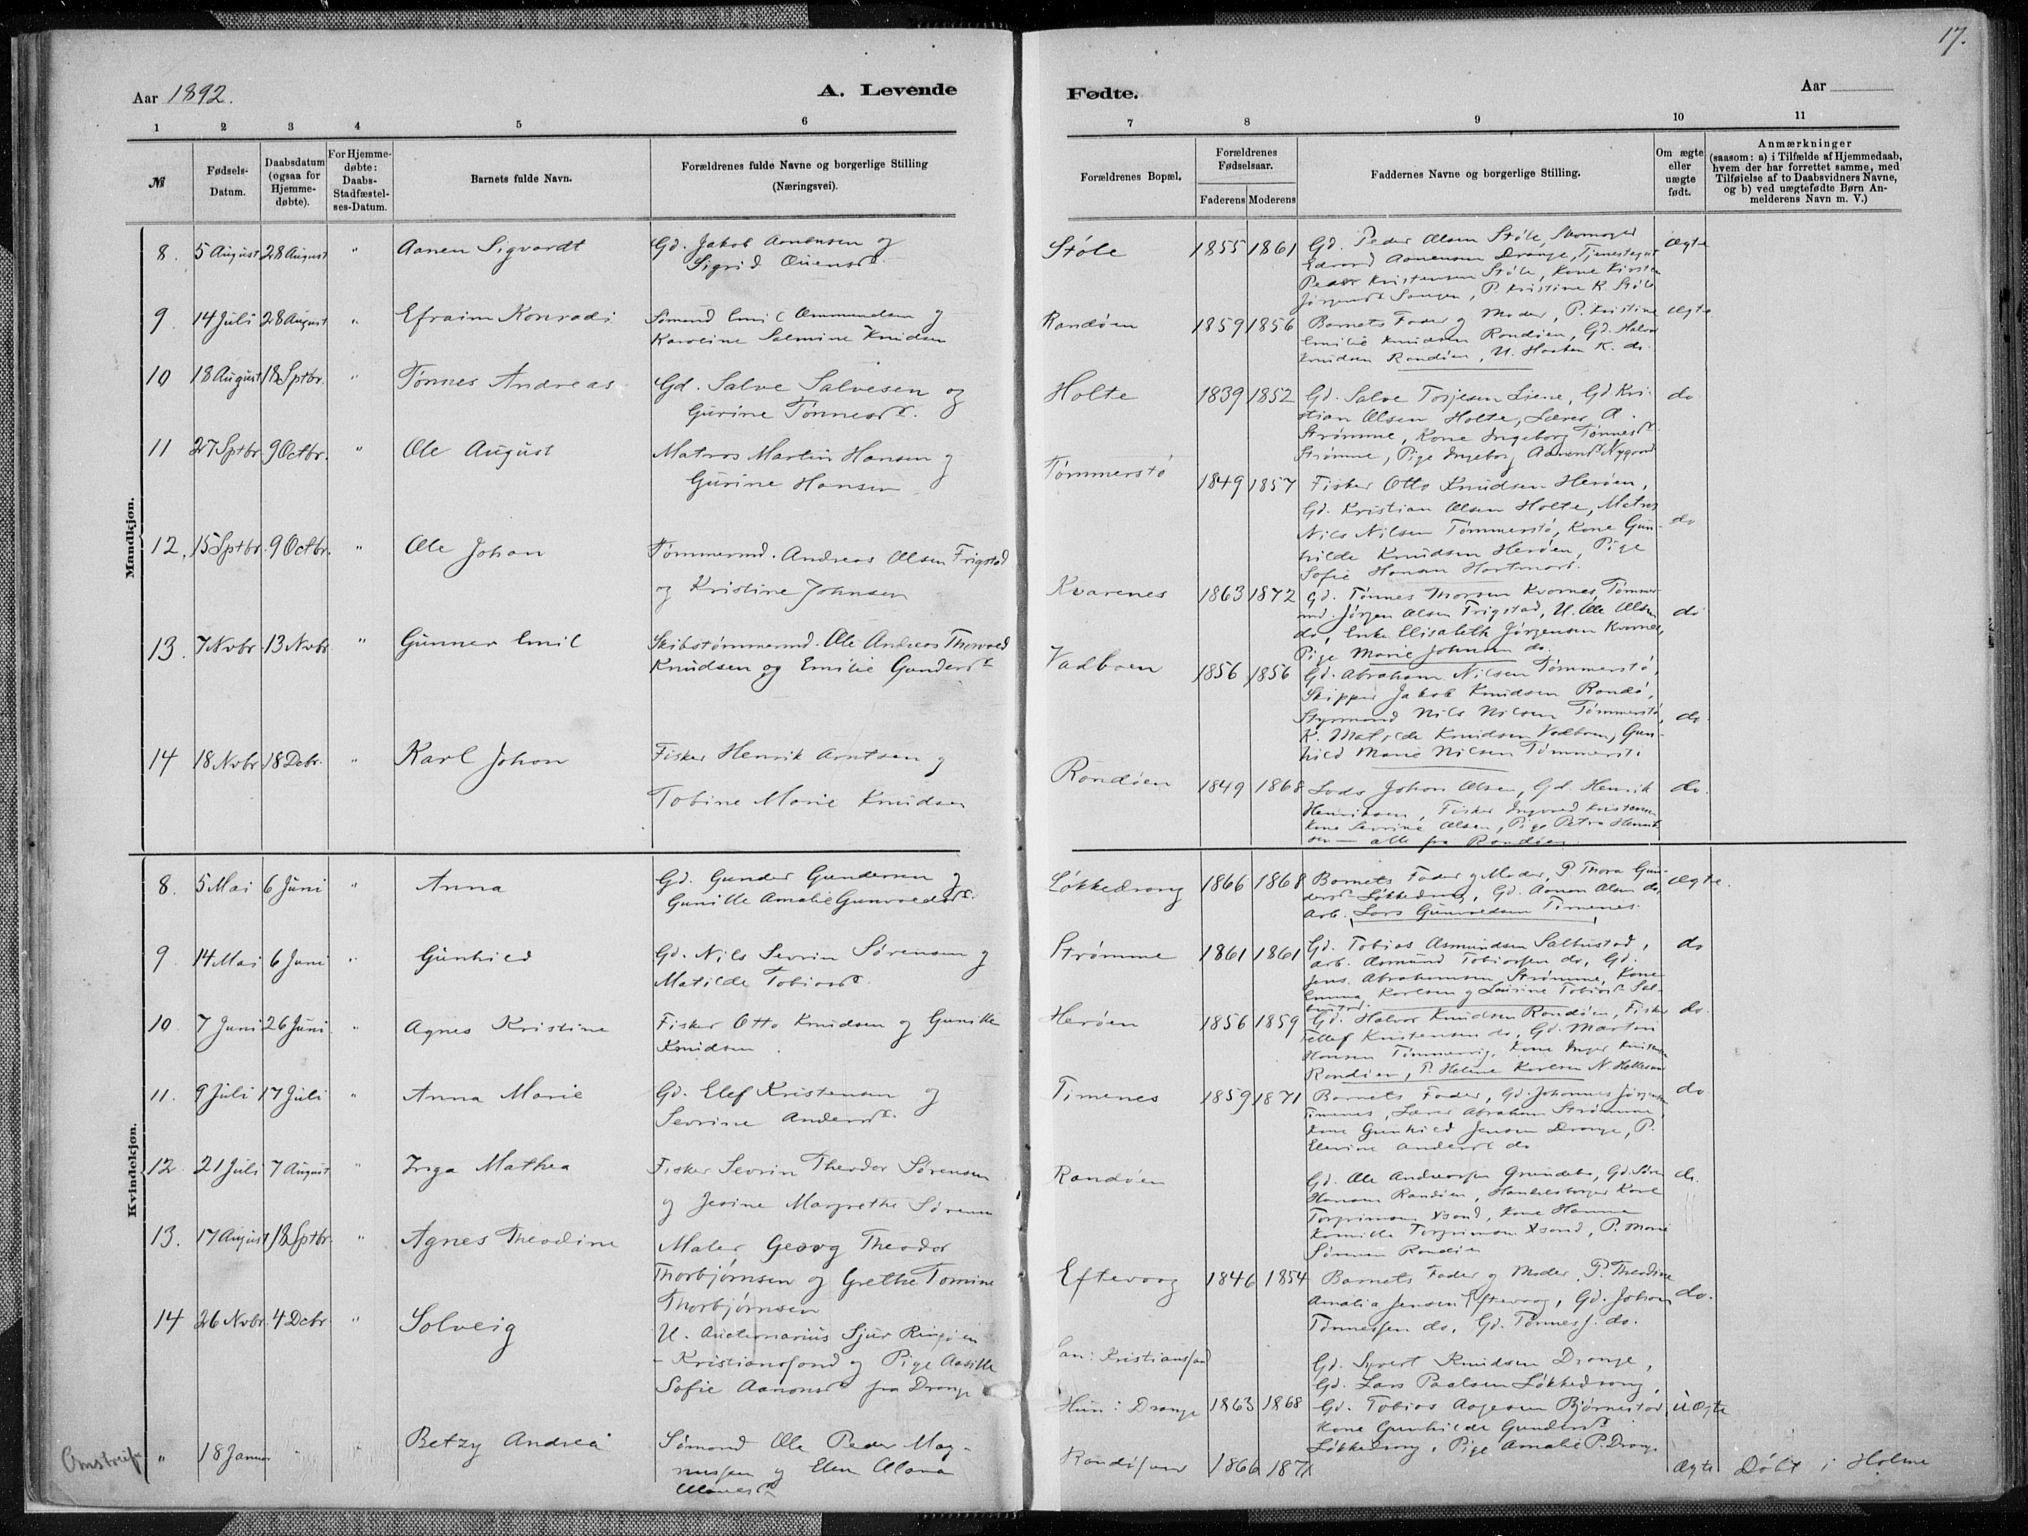 17.
Aar 1892.
A. Levende
Fødte.
Aar
1 2 3 4 5 6
7 8 9 10 11
№
Fødsels-
Datum.
Daabsdatum
(ogsaa for
Hjemme-
døbte).
For Hjemme-
døbte:
Daabs-
Stadfæstel-
ses-Datum.
Barnets fulde Navn.
Forældrenes fulde Navne og borgerlige Stilling
(Næringsvei).
Forældrenes Bopæl.
Forældrenes
Fødselsaar.
Faderens Moderens
Faddernes Navne og borgerlige Stilling.
Om ægte
eller
uægte
født.
Anmærkninger
(saasom: a) i Tilfælde af Hjemmedaab,
hvem der har forrettet samme, med
Tilføielse af to Daabsvidners Navne,
og b) ved uægtefødte Børn An-
melderens Navn m. V.)
Mandkjøn.
8. 5 August 28 August " Aanen Sigvardt Gd. Jakob Aanensen og
Sigrid
Støle 1855 1861 Gd. Peder Olsen Støle, Skomager ægte
Edvard Aanensen Drange, Tjenestegut
Peder Kristensen Støle, Kone Kirsten
P. Kristine K. Støle
9. 14 Juli 28 August " Efraim Konradi Sømand Emil og
Karoline Salmine Knudsen
Randøen 1859 1856 Barnets Fader og Moder, P. Kristine ægte
Emilie Knudsen Randøen, Gd. Halvor
Knudsen Randøen, U. K. do.
10 18 August 18 Sptbr. " Tønnes Andreas Gd. Salve Salvesen og
Gurine Tønnesd.
Holte 1839 1852 Gd. Salve Torjesen Liene, Gd. Kri- do
stian Olsen Holte, Lærer A.
Strømme, Kone Ingeborg Tønnesd.
Strømme, Pige Ingeborg Aanensd. Nygaard
11 27 Sptbr. 9 Octbr. " Ole August Matros Martin Hansen og
Gurine Hansen
Tømmerstø 1849 1857 Fisker Otto Knudsen Herøen,
Gd. Kristian Olsen Holte, Matros
Nils Nilsen Tømmerstø, Kone Gun- do
hilde Knudsen Herøen, Pige
Sofie Hansen
12. 15 Sptbr. 9 Octbr. " Ole Johan Tømmermd. Andreas Olsen Frigstad
og Kristine Johnsen
Kvarenes 1863 1872 Gd. Tønnes Thorsen Kvarnes, Tømmer
md. Jørgen Olsen Frigstad, U. Ole Olsen do
do, Enke Elisabeth Jørgensen Kvarnes,
Pige Marie Johnsen do.
13. 7 Nvbr. 13 Nvbr. " Gunner Emil Skibstømmermd. Ole Andreas Thorvald
Knudsen og Emilie Gundersd.
Vadboen 1856 1856 Gd. Abraham Nilsen Tømmerstø,
Skipper Jakob Knudsen Randø,
Styrmand Nils Nilsen Tømmerstø, do
K. Matilde Knudsen Vadboen, Gun-
hild Marie Nilsen Tømmerst.
14 18 Nvbr. 18 Debr. " Karl Johan Fisker Henrik Arntsen og
Tobine Marie Knudsen
Randøen 1849 1868 Lods Johan Olsen, Gd. Henrik do.
Henriksen, Fisker Ingvald Kristensen
Kone Sevrine Olsen, Pige Petra Henrik
sen — alle fra Randøen
Kvindekjøn.
8. 5 Mai 6 Juni " Anna Gd. Gunder Gundersen og
Gunille Amalie Gunvaldsd.
Løkkedrang 1866 1868 Barnets Fader og Moder, P. Thora Gun- ægte.
dersd. Løkkedrang, Gd. Aanen Olsen do,
Arb. Lars Gunvaldsen Timenes
9. 14 Mai 6 Juni " Gunhild Gd. Nils Sevrin Sørensen og
Matilde Tobiasd.
Strømme 1861 1861 Gd. Tobias Asmundsen Salbustad, do
Arb. Asmund Tobiassen do, Gd.
Jens Abrahamsen Strømme, Kone
Emma Karlsen og Laurine Tobiasd. Sal-
bustad
10. 7 Juni 26 Juni " Agnes Kristine Fisker Otto Knudsen og Gunille
Knudsen.
Herøen 1856 1859 Gd. Halvor Knudsen Randøen, Fisker do.
Tellef Kristensen do, Gd. Martin
Hansen Tømmervig, Kone Inger Knudsen
Randøen, P. Helene Karlsen
11. 9 Juli 17 Juli " Anna Marie Gd. Elef Kristensen og
Sevrine Andersd.
Timenes 1859 1871 Barnets Fader, Gd. Johannes Jørgensen do.
Timenes, Lærer Abraham Strømme,
Kone Gunhild Jensen Drange, P.
Elevine Andersd. do
12. 21 Juli 7 August " Inga Mathea Fisker Sevrin Theodor Sørensen
og Jesine Margrethe Sørensen
Randøen Gd. Ole Andreassen Grundeba, Gd. Søren do.
Hansen Randøen, Handelsborger Karl
Torgrimsen Xsand, Kone Hanna
Kamilla Torgrimsen Xsand, P. Marie
Sørensen Randøen
13. 17 August 18 Sptbr. " Agnes Theodine Maler Georg Theodor
Thorbjørnsen og Grethe Tomine
Thorbjørnsen
Eftevaag 1846 1854 Barnets Fader og Moder, P. Theodine
Amalia Jensen Eftevaag, Gd. Johan do.
Tønnessen do, Gd. Tønnes J. do.
14 26 Nvbr. 4 Debr. " Solveig U. Auctionarius Sjur Ringøen
- Kristianssand og Pige Aasille
Sofie Aanonsd. fra Drange
Han: Kristianssand
Hun: Drange 1863 1868
Gd. Syvert Knudsen Drange,
Gd. Lars Paalsen Løkkedrang,
Gd. Tobias Aagesen Bjørnestad, uægte
Kone Gunhilde Gundersd.
Løkkedrang, Pige Amalie P. Drange
" 18 Januar " " Betzy Andrea Sømand Ole Peder Mag-
nussen og Elen Olana
Olavesd.
Randøsund 1866 1871 ægte Døbt i Holme